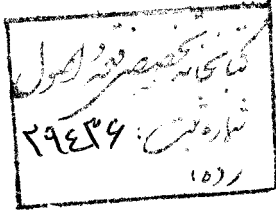 کتابخانه تخصصی فقه و اصول
شماره ثبت: ۲۹۴۳۶